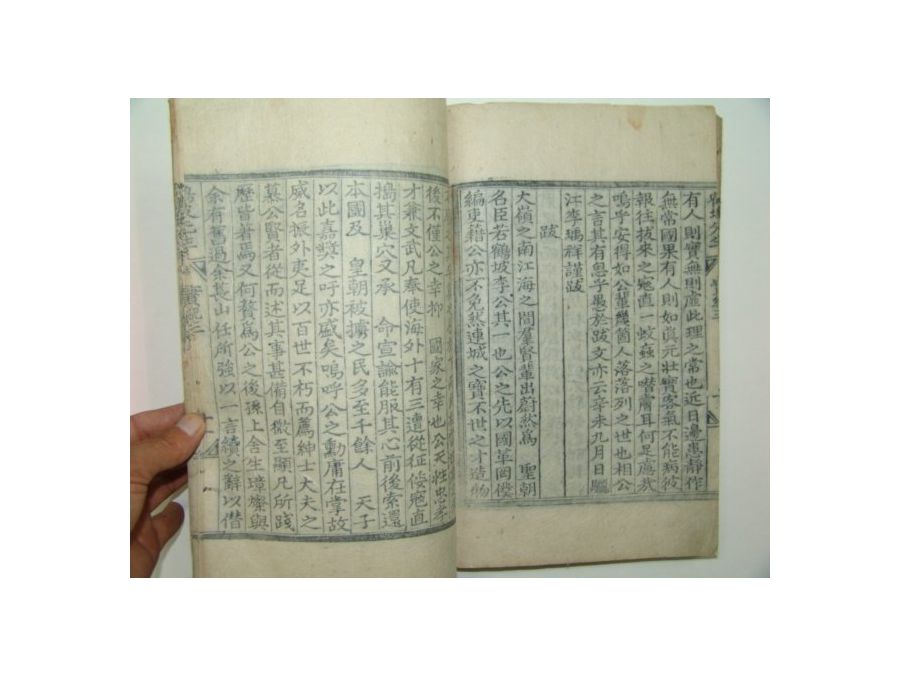 有人則實無則虛此理之當也近日邊患靜作
無常國果有人則如眞元壯實客氣不能病彼
報往拔來之寇直一蚊蝱之噆膚耳何足處哉
嗚乎安得如公輩幾箇人落落列之世也相公
之言其有思乎愚於跋文亦云辛未九月日驪
江李瑀祥謹跋
跋
大嶺之南江海之間羣賢輩出蔚然爲 聖朝
名臣若鶴坡李公其一也公之先以國革罔僕
編吏籍公亦不免然連城之寶不世之才造物
後不僅公之幸抑 國家之幸也公天性忠孝
才兼文武凡奉使海外十有三遭從征倭寇直
搗其巢穴又承 命宣諭能服其心前後索還
本國及 皇朝被擄之民多至千餘人 天子
以此嘉獎之吁亦盛矣嗚呼公之勳庸在掌故
威名振外夷足以百世不朽而薦紳士大夫之
慕公賢者從而述其事甚備自微至顯凡所踐
歷皆著焉又何贅爲公之後孫上舍生璋燦與
余有舊過余萇山任所強以一言續之辭以僭